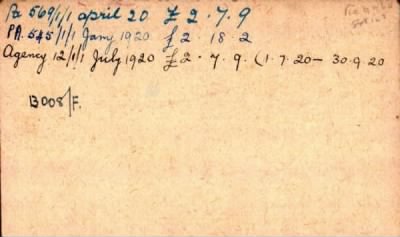 Pa 569/1/1 april 20 £ 2 . 7 . 9
PA. 545/1/1 Jany 1920 £ 2 . 18 . 2
Agency 12/1/1 July 1920 £ 2 . 7 . 9. (1.7.20 - 30.9.20
B008/F.